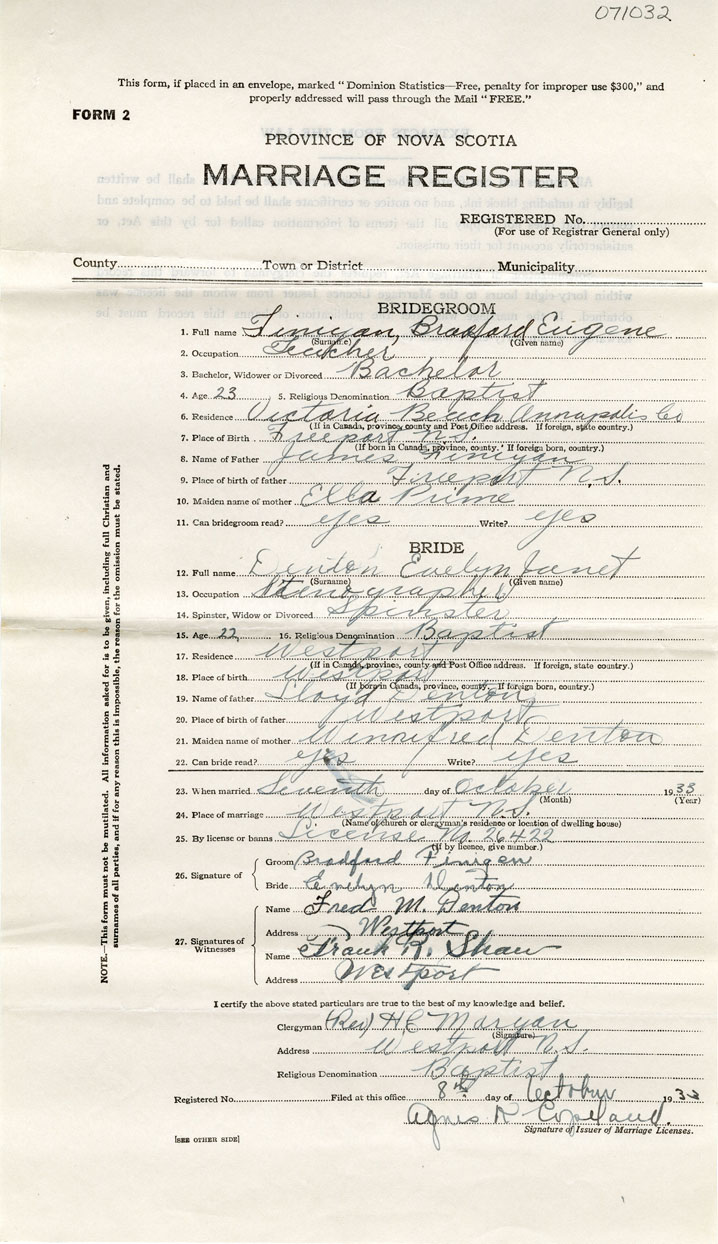 071032
This form, if placed in an envelope, marked "Dominion Statistics—Free, penalty for improper use $300," and
properly addressed will pass through the Mail "FREE."
FORM 2
PROVINCE OF NOVA SCOTIA
MARRIAGE REGISTER
REGISTERED No.
(For use of Registrar General only)
County Town or District Municipality
BRIDEGROOM
1. Full name Finigan, Bradford Eugene
(Surname) (Given name)
2. Occupation Teacher
3. Bachelor, Widower or Divorced Bachelor
4. Age 23 5. Religious Denomination Baptist
6. Residence Victoria Beach Annapolis Co
(If in Canada, province, county and Post Office address. If foreign, state country.)
7. Place of Birth Freeport N.S.
(If born in Canada, province, county. If foreign born, country.)
8. Name of Father James Finigan
9. Place of birth of father Freeport N.S.
10. Maiden name of mother Ella Prime
11. Can bridegroom read? yes Write? yes
BRIDE
12. Full name Denton Evelyn Janet
(Surname) (Given name)
13. Occupation Stenographer
14. Spinster, Widow or Divorced Spinster
15. Age 22 16. Religious Denomination Baptist
17. Residence Westport
(If in Canada, province, county and Post Office address. If foreign, state country.)
18. Place of birth Westport
(If born in Canada, province, county. If foreign born, country.)
19. Name of father Lloyd Denton
20. Place of birth of father Westport
21. Maiden name of mother Winnifred Denton
22. Can bride read? yes Write? yes
23. When married Seventh day of October 1933
(Month) (Year)
24. Place of marriage Westport N.S.
(Name of church or clergyman's residence or location of dwelling house)
25. By license or banns License No. 26422
(If by licence, give number.)
26. Signature of
Groom Bradford Finigan
Bride Evelyn Denton
27. Signatures of Witnesses
Name Fred M. Denton
Address Westport
Name Frank R. Shaw
Address Westport
I certify the above stated particulars are true to the best of my knowledge and belief.
Clergyman (Rev) H E
(Signature)
Address Westport N.S.
Religious Denomination Baptist
Registered No. Filed at this office 8th day of October 1933
Agnes R Copeland.
Signature of Issuer of Marriage Licenses.
[SEE OTHER SIDE]
NOTE.—This form must not be mutilated. All information asked for is to be given, including full Christian and
surnames of all parties, and if for any reason this is impossible, the reason for the omission must be stated.